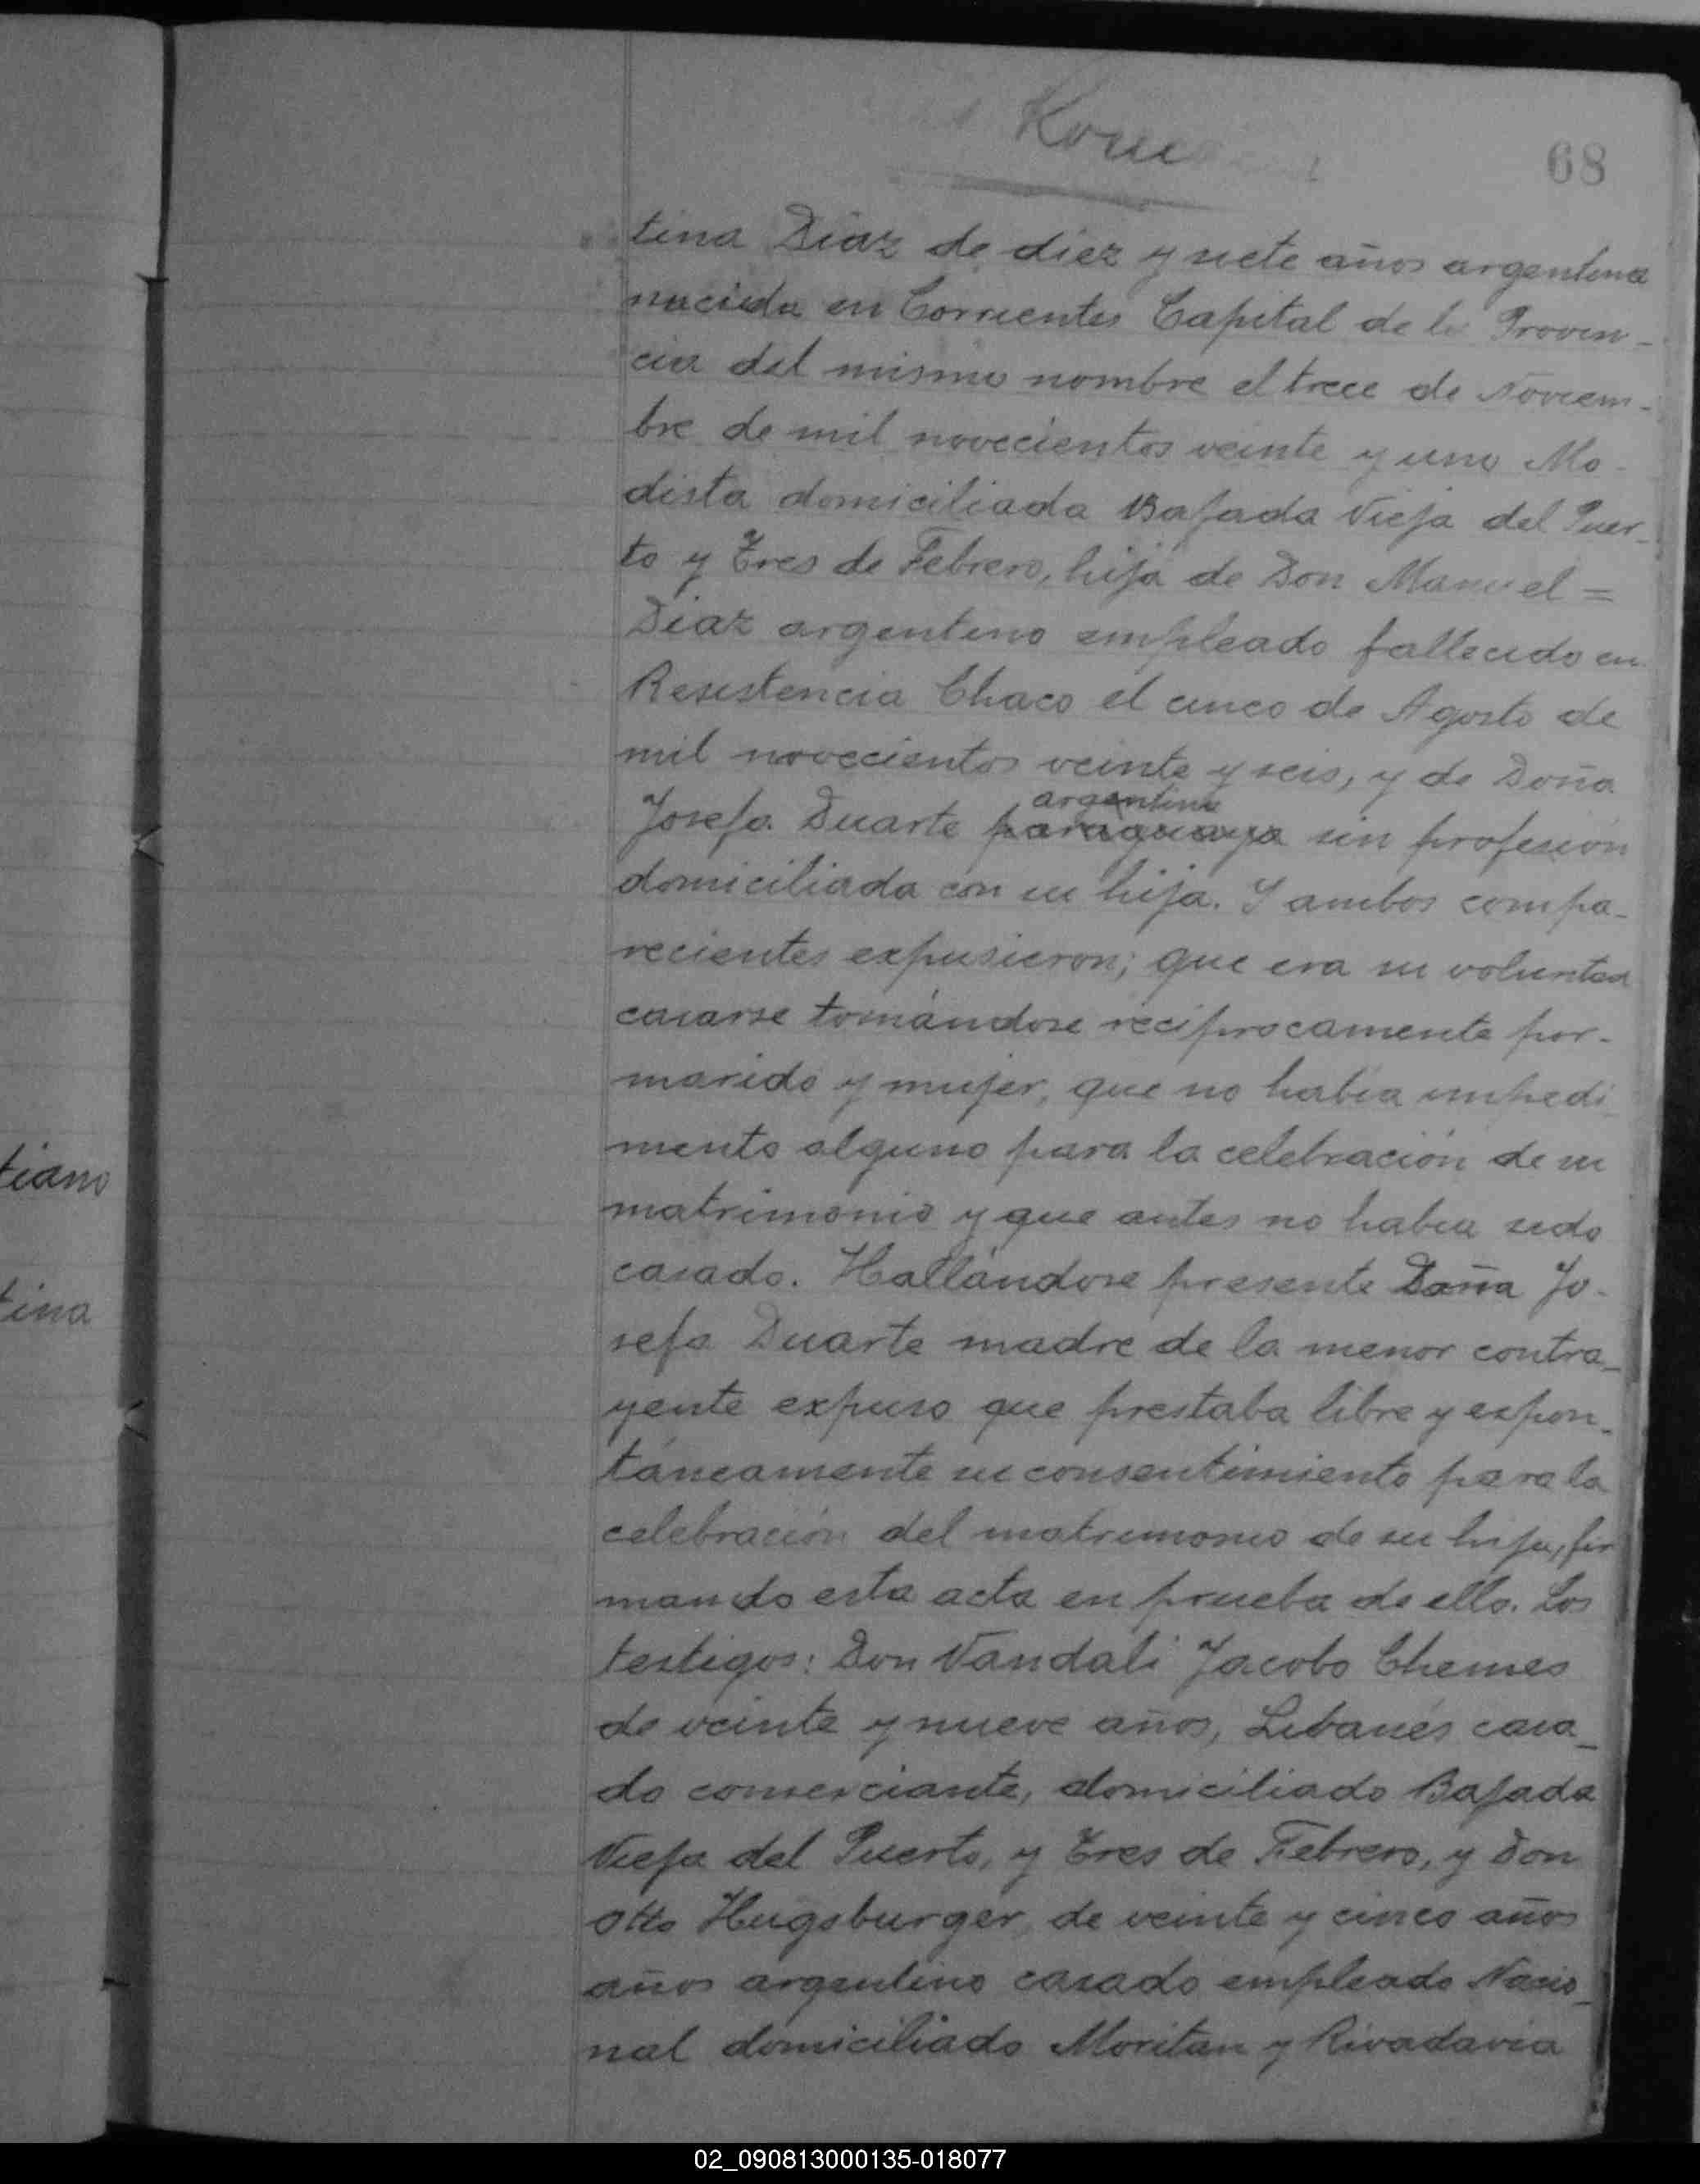 68
tina Diaz de diez y siete años argentina
nacida en Corrientes Capital de la Provin-
cia del mismo nombre el trece de Noviem-
bre de mil novecientos veinte y uno Mo-
dista domiciliada Bajada Vieja del Puer-
to y Tres de Febrero, hija de Don Manuel =
Diaz argentino empleado fallecido en
Resistencia Chaco el cinco de Agosto de
mil novecientos veinte y seis, y de Doña
argentina
Josefa Duarte paraguaya sin profesion
domiciliada con su hija. Y ambos compa-
recientes expusieron; que era su voluntad
casarse tomándose reciprocamente por-
marido y mujer, que no habia impedi
mento alguno para la celebración de su
matrimonio y que antes no habia sido
casado. Hallándose presente Doña Jo-
sefa Duarte madre de la menor contra-
yente expuso que prestaba libre y espon-
táneamente su consentimiento para la
celebración del matrimonio de su hija, fir
mando esta acta en prueba de ello. Los
testigos: Don Vandali Jacobo Chemes
de veinte y nueve años, Libanés casa-
do comerciante, domiciliado Bajada
Vieja del Puerto, y Tres de Febrero, y Don
Otto Hugsburger, de veinte y cinco años
años argentino casado empleado Nacio-
nal domiciliado Moritan y Rivadavia
tiano
tina
02_090813000135-018077